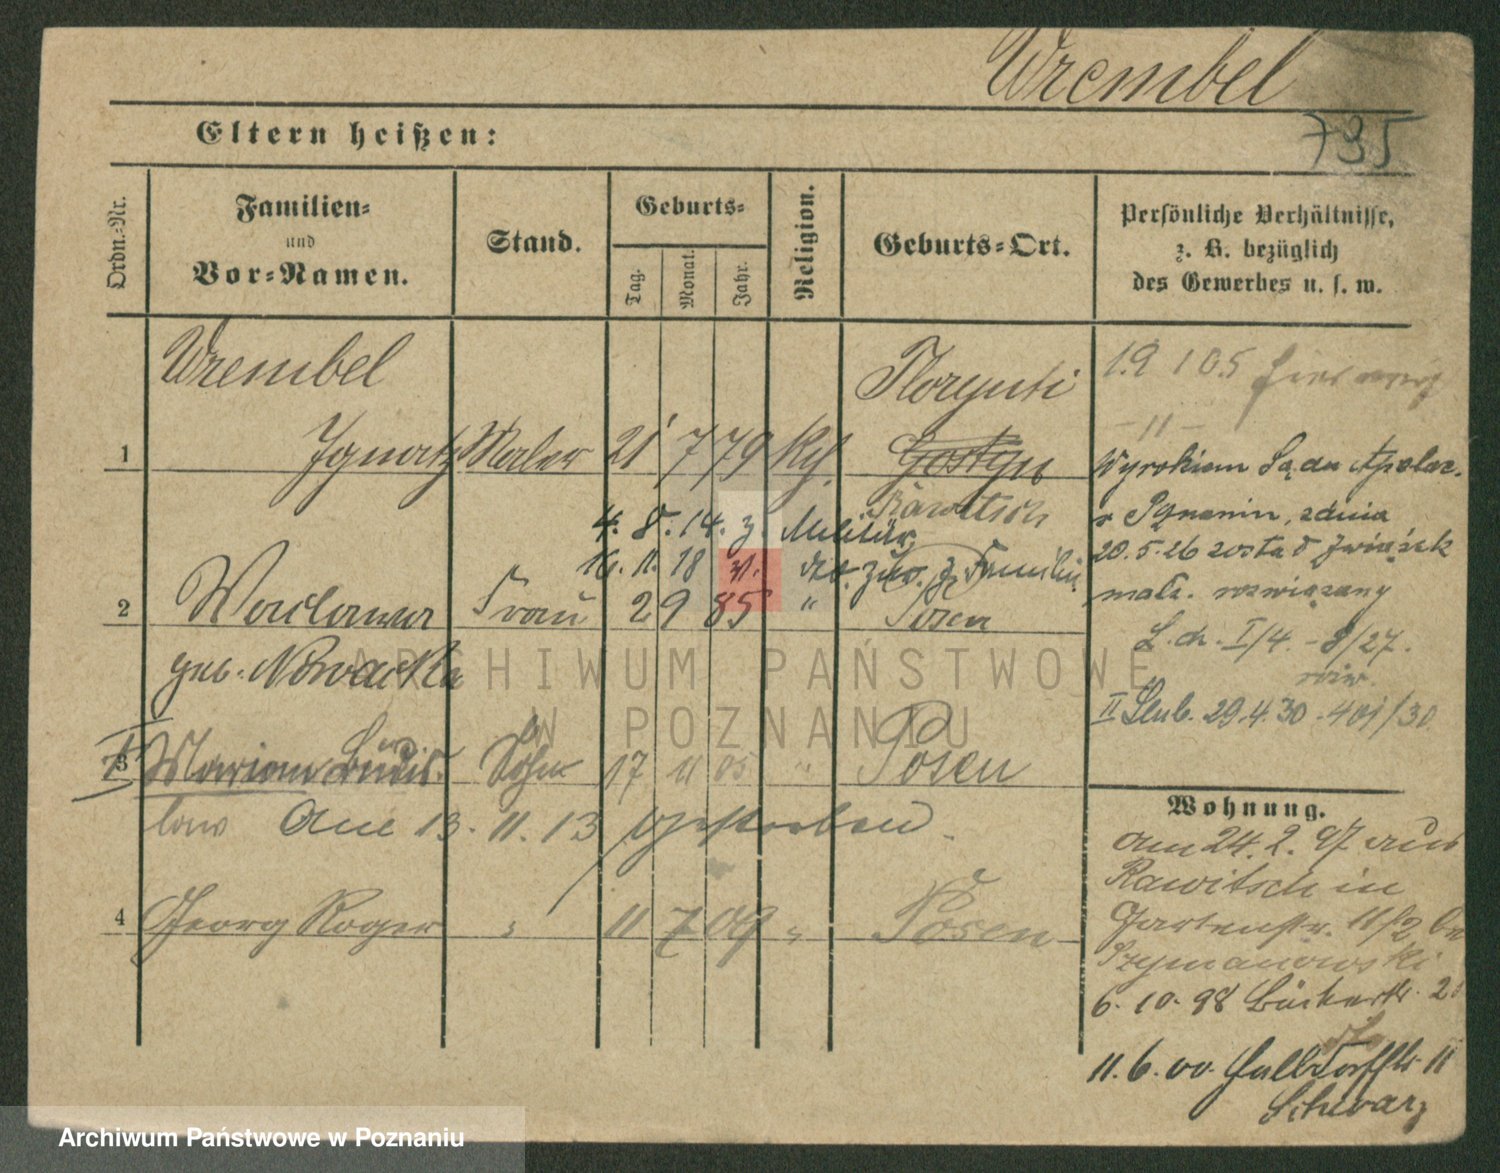 Wrembel
735
Eltern heißen:
Ordn.-Nr.
Familien-
und
Vor-Namen.
Stand.
Geburts-
Tag.
Monat.
Jahr.
Religion.
Geburts-Ort.
Persönliche Verhältnisse,
z. B. bezüglich
des Gewerbes u. s. w.
Wrembel
1 Ignatz Maler 21 7 79 Kth.
Gostyn
Rawitsch
4. 8. 14. z. Militär
16. 11. 18 v. zur. z. Familie
2 Waclawa Frau 2 9 85 " Posen
geb. Nowacka
3 Marian Sohn 17 11 05 " Posen
law Am 13. 11. 13 gestorben
4 Georg Roger " 11 7 09 " Posen
19 1 05
- " -
Wyrokiem Sądu Apelac.
w Poznaniu, z dnia
20. 5. 26 został związek
małż. rozwiązany
L. ch. I/4. - 8/27.
II Ślub. 29. 4. 30 - 401/30
Wohnung.
am 24. 2. 97 aus
Rawitsch in
Gartenstr. 11/2 bei
Szymanowski
6. 10. 98 Bäckerstr. 2
11. 6. 00. Halbdorfstr 11
Schwarz
ARCHIWUM PAŃSTWOWE
W POZNANIU
Archiwum Państwowe w Poznaniu